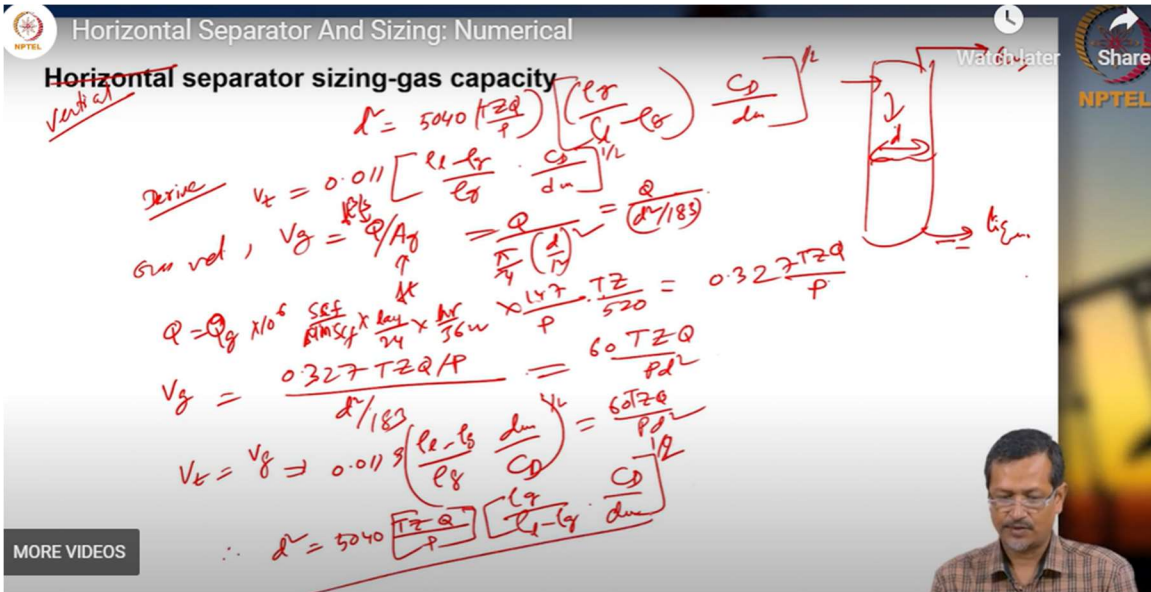 NPTEL
Horizontal Separator And Sizing: Numerical
Watch later
Share
NPTEL
Horizontal separator sizing-gas capacity
Vertical
d² = 5040 (TZQ/P) [(ρg/ρl - ρg) CD/dm]^1/2
Derive Vt = 0.011 [ρl - ρg/ρg · CD/dm]^1/2
Gas vel, Vg = Q/Ag = Q/(π/4 (d/12)²) = Q/(d²/183)
ft³/s
ft²
d
Q = Qg x10⁶ scf/MMscf x day/24 x hr/3600 x 14.7/P · TZ/520 = 0.327 TZQ/P
Vg = 0.327 TZQ/P / d²/183 = 60 TZQ/Pd²
Vt = Vg ⇒ 0.0119 (ρl - ρg/ρg dm/CD)^1/2 = 60TZQ/Pd²
∴ d² = 5040 [TZQ/P] [ρg/ρl - ρg · CD/dm]^1/2
MORE VIDEOS